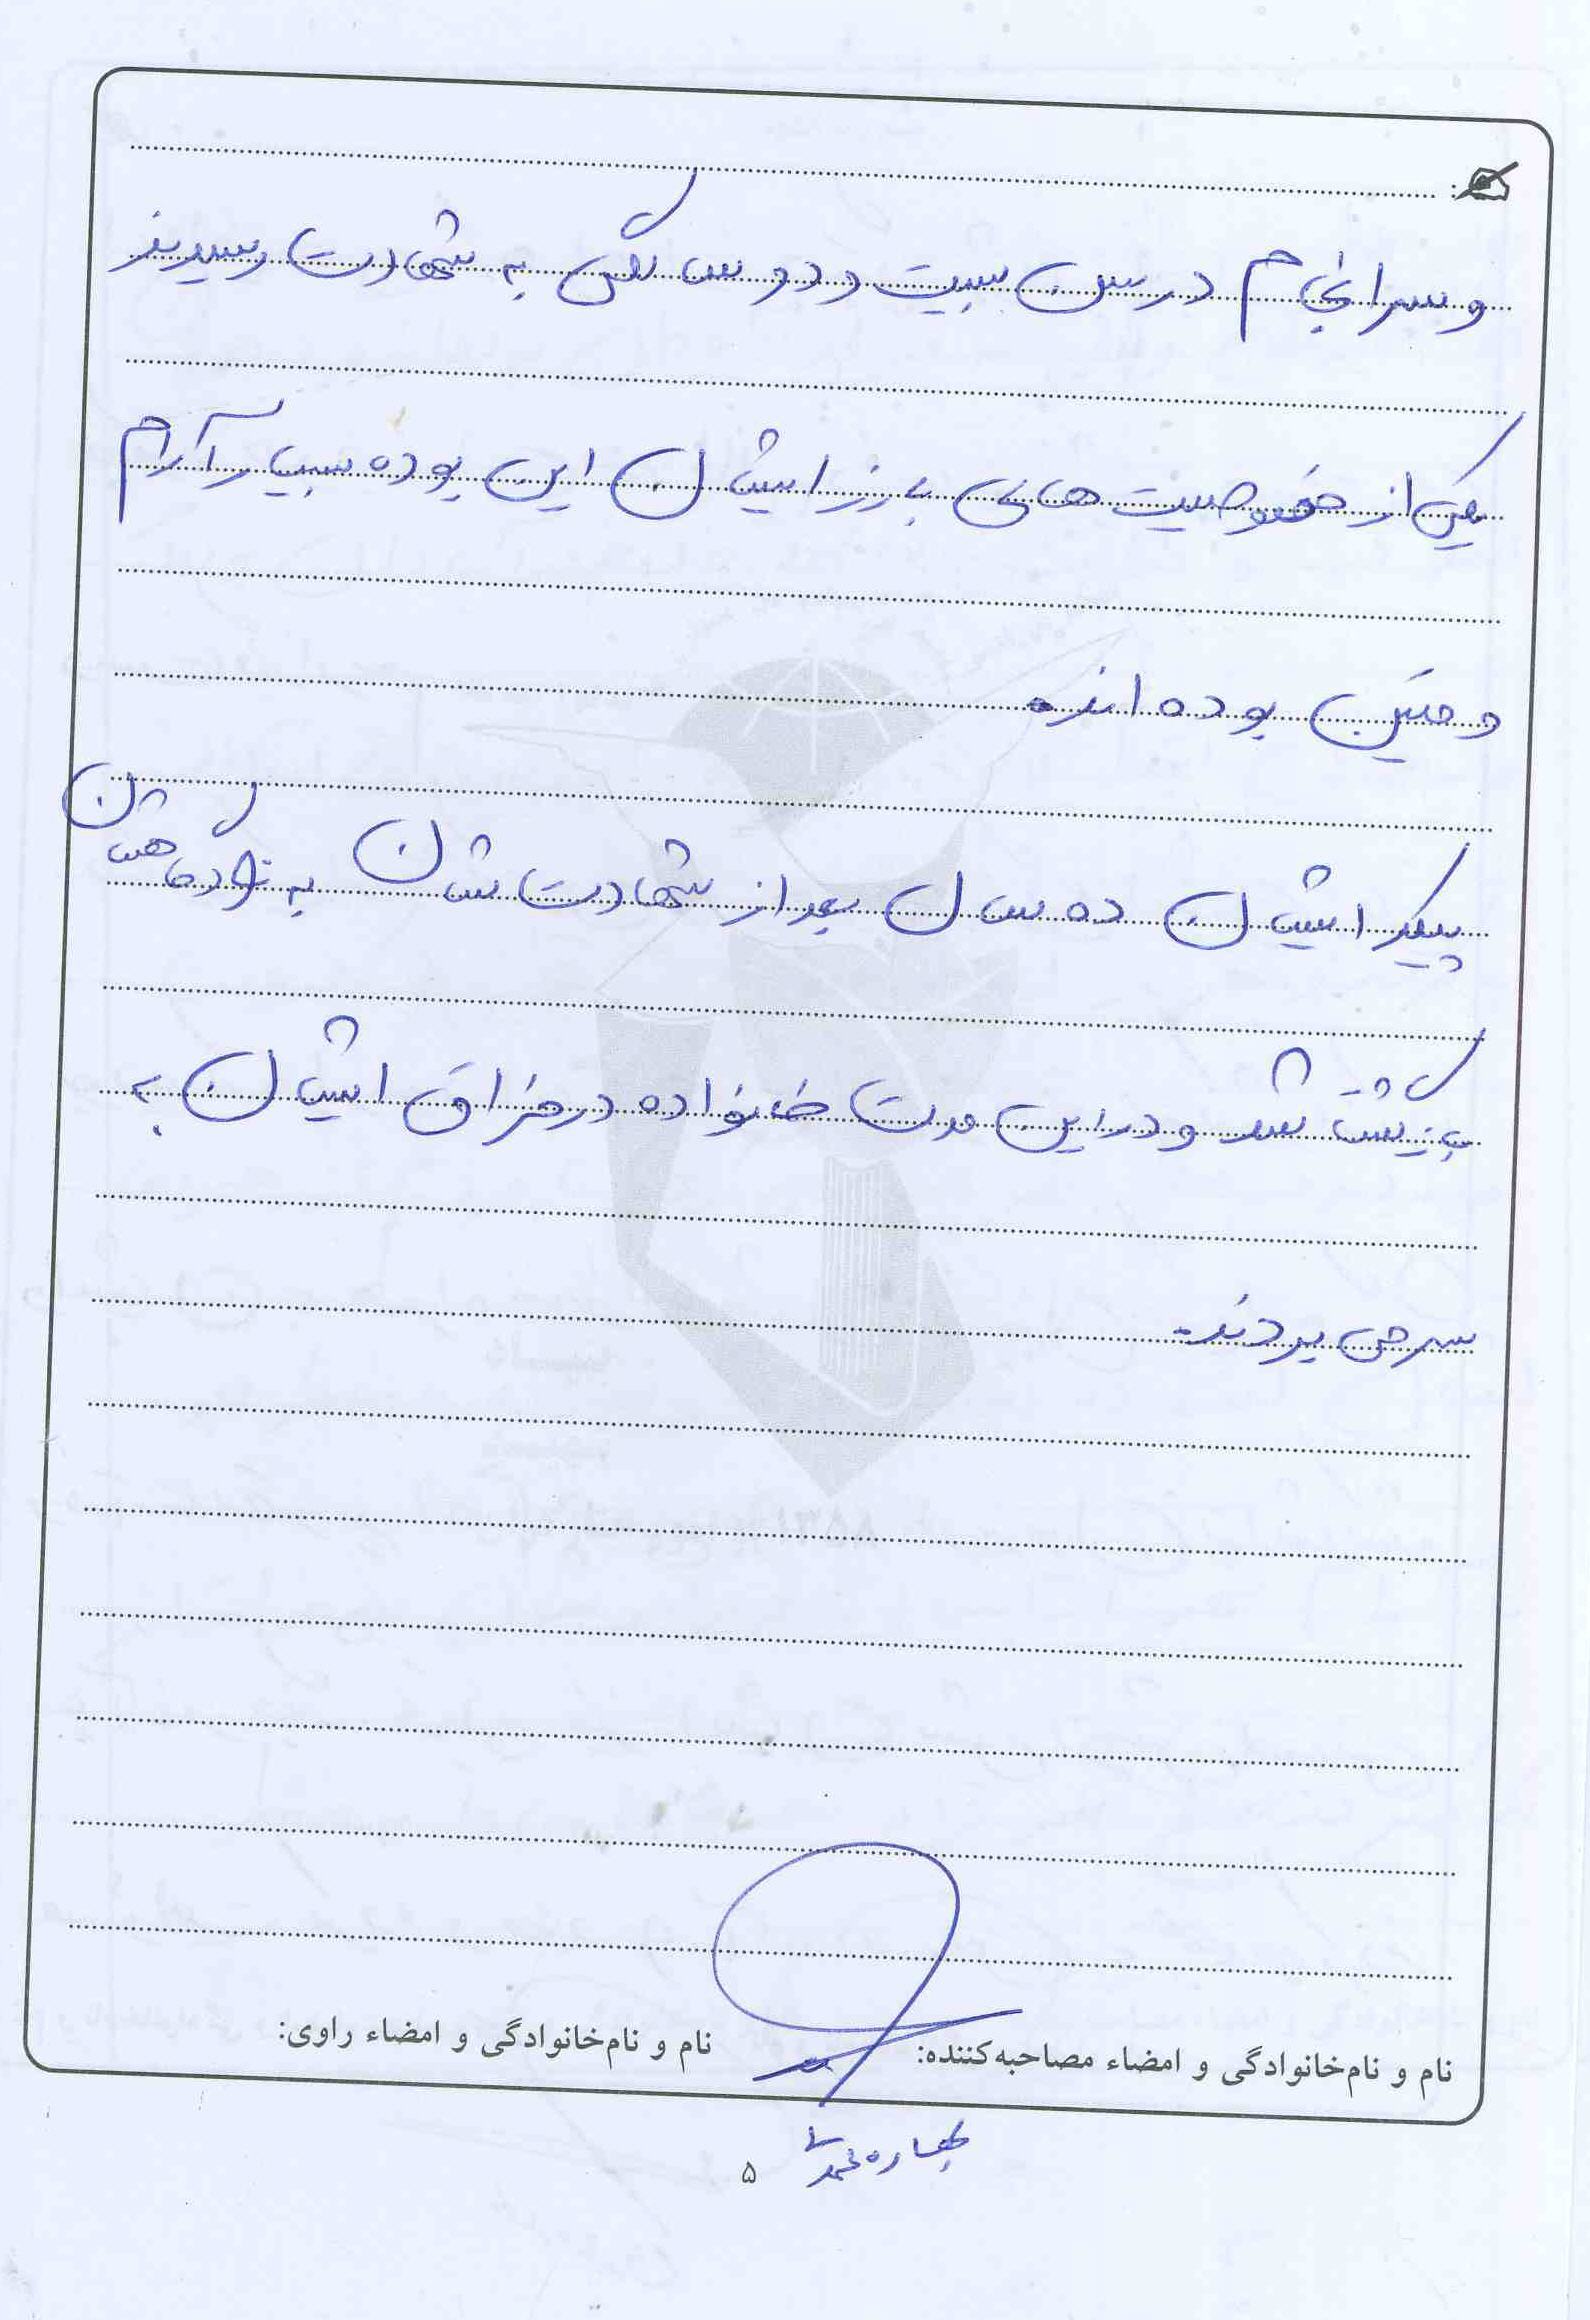 و سرانجام در سن بیست و دو سالگی به شهادت رسیدند
یکی از خصوصیت های بارز ایشان این بوده بسیار آرام
و متین بوده اند.
پیکر ایشان ده سال بعد از شهادت شان به زادگاهشان
بازگشته شد و در این مدت خانواده در فراق ایشان به
سر می بردند.
نام و نام‌خانوادگی و امضاء مصاحبه‌کننده: نام و نام‌خانوادگی و امضاء راوی:
بهاره محمدی
۵